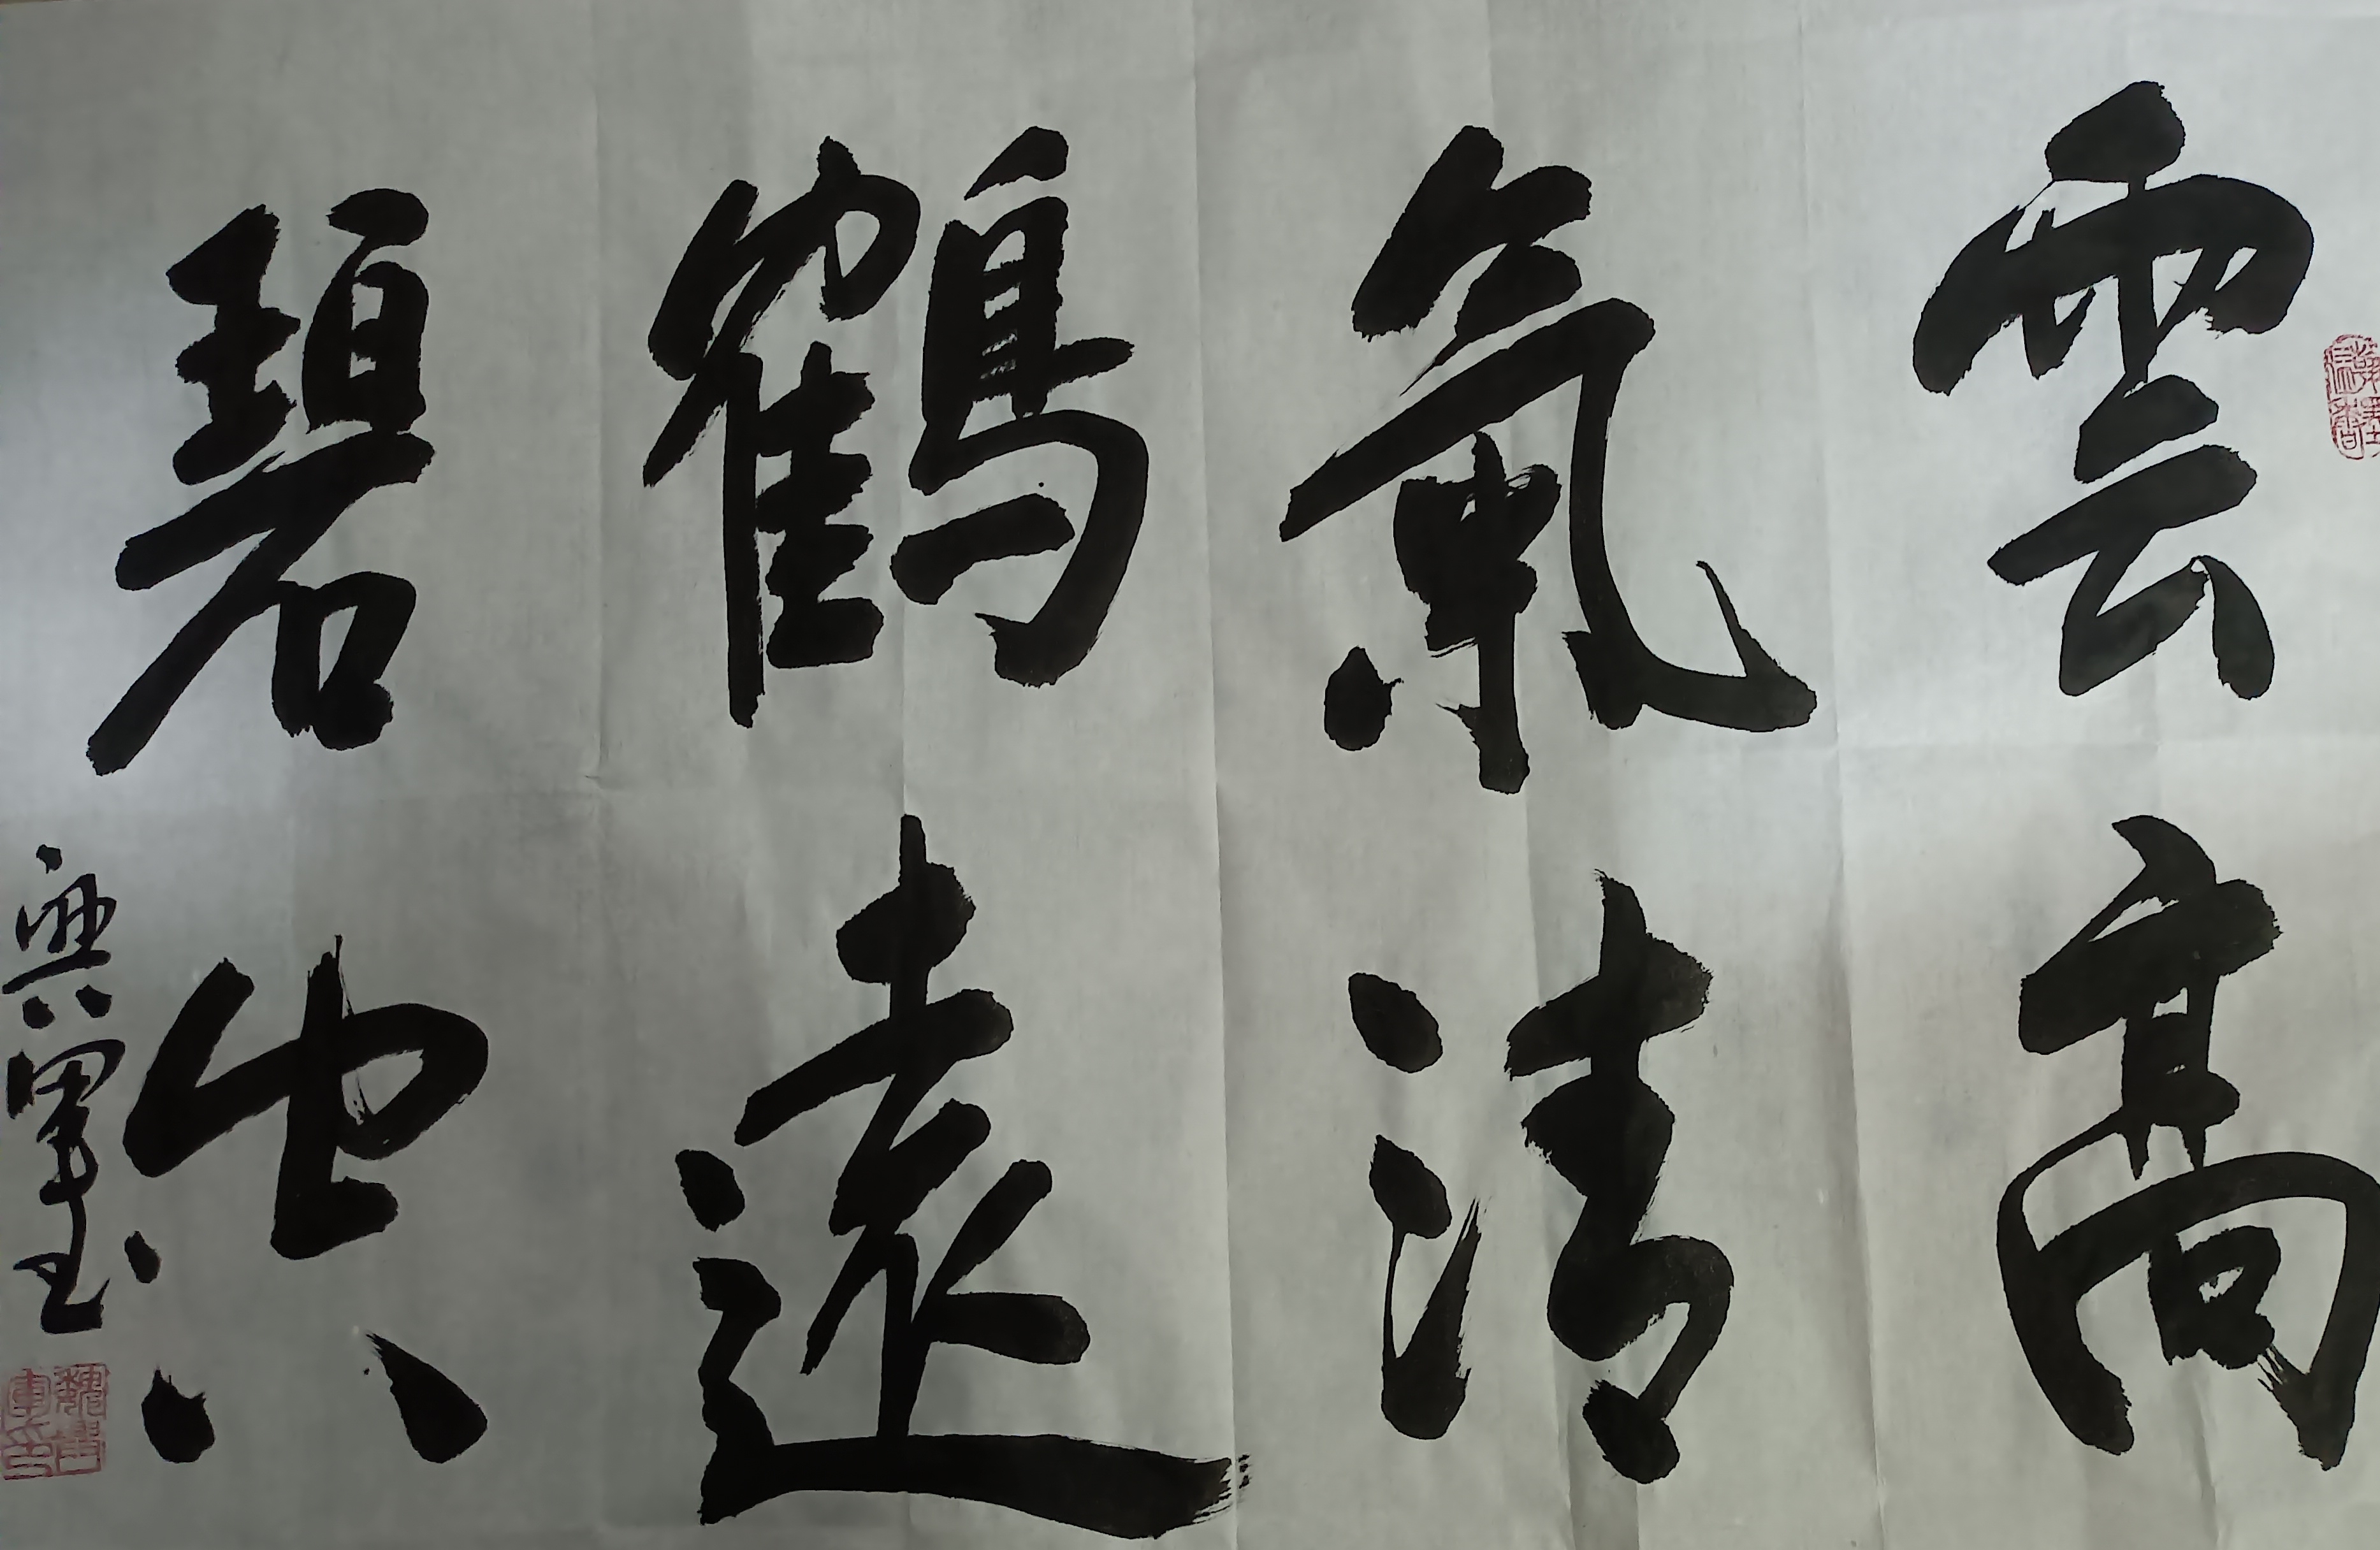 雲高
氣清
鶴遠
碧
典軍書